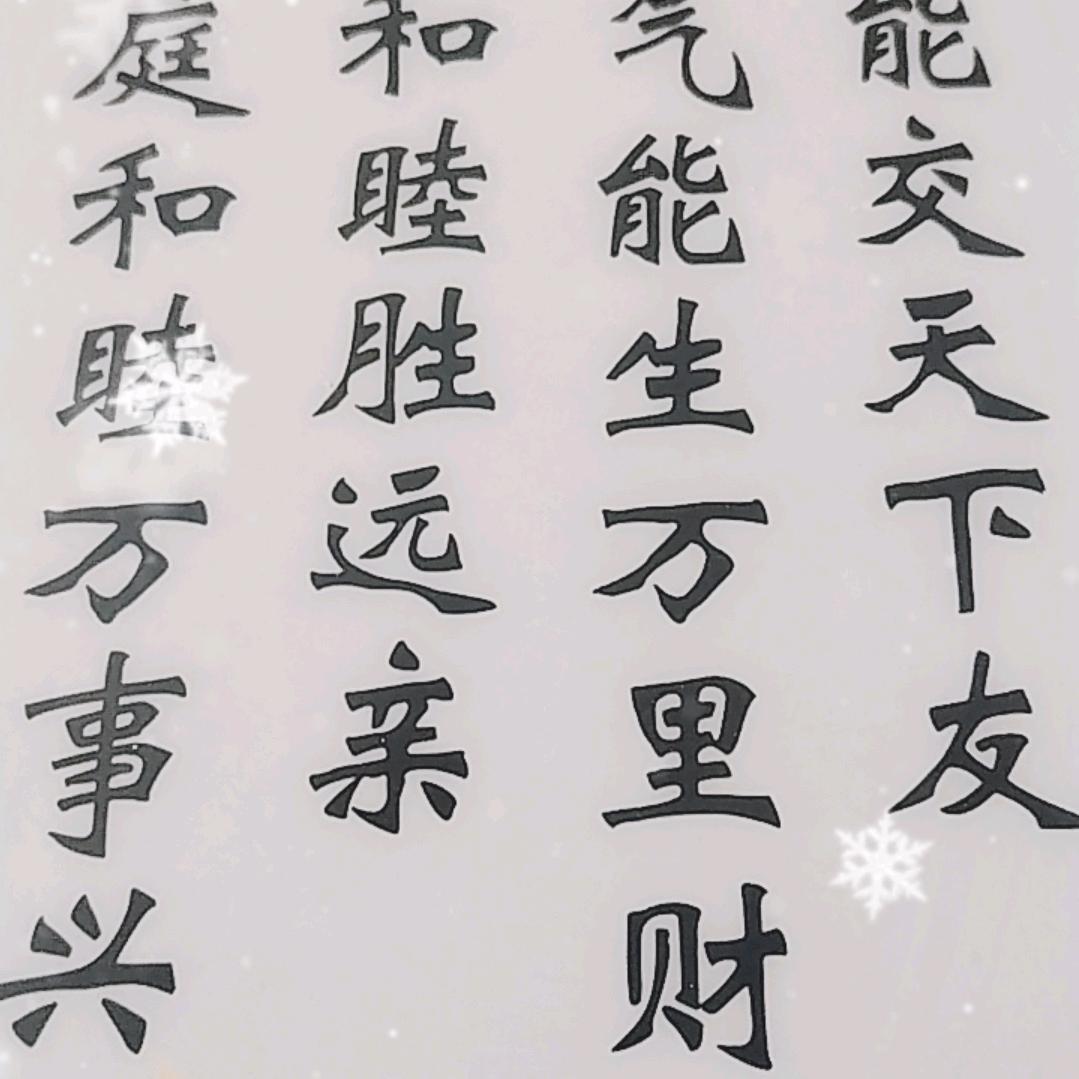 能交天下友
气能生万里财
和睦胜远亲
庭和睦万事兴